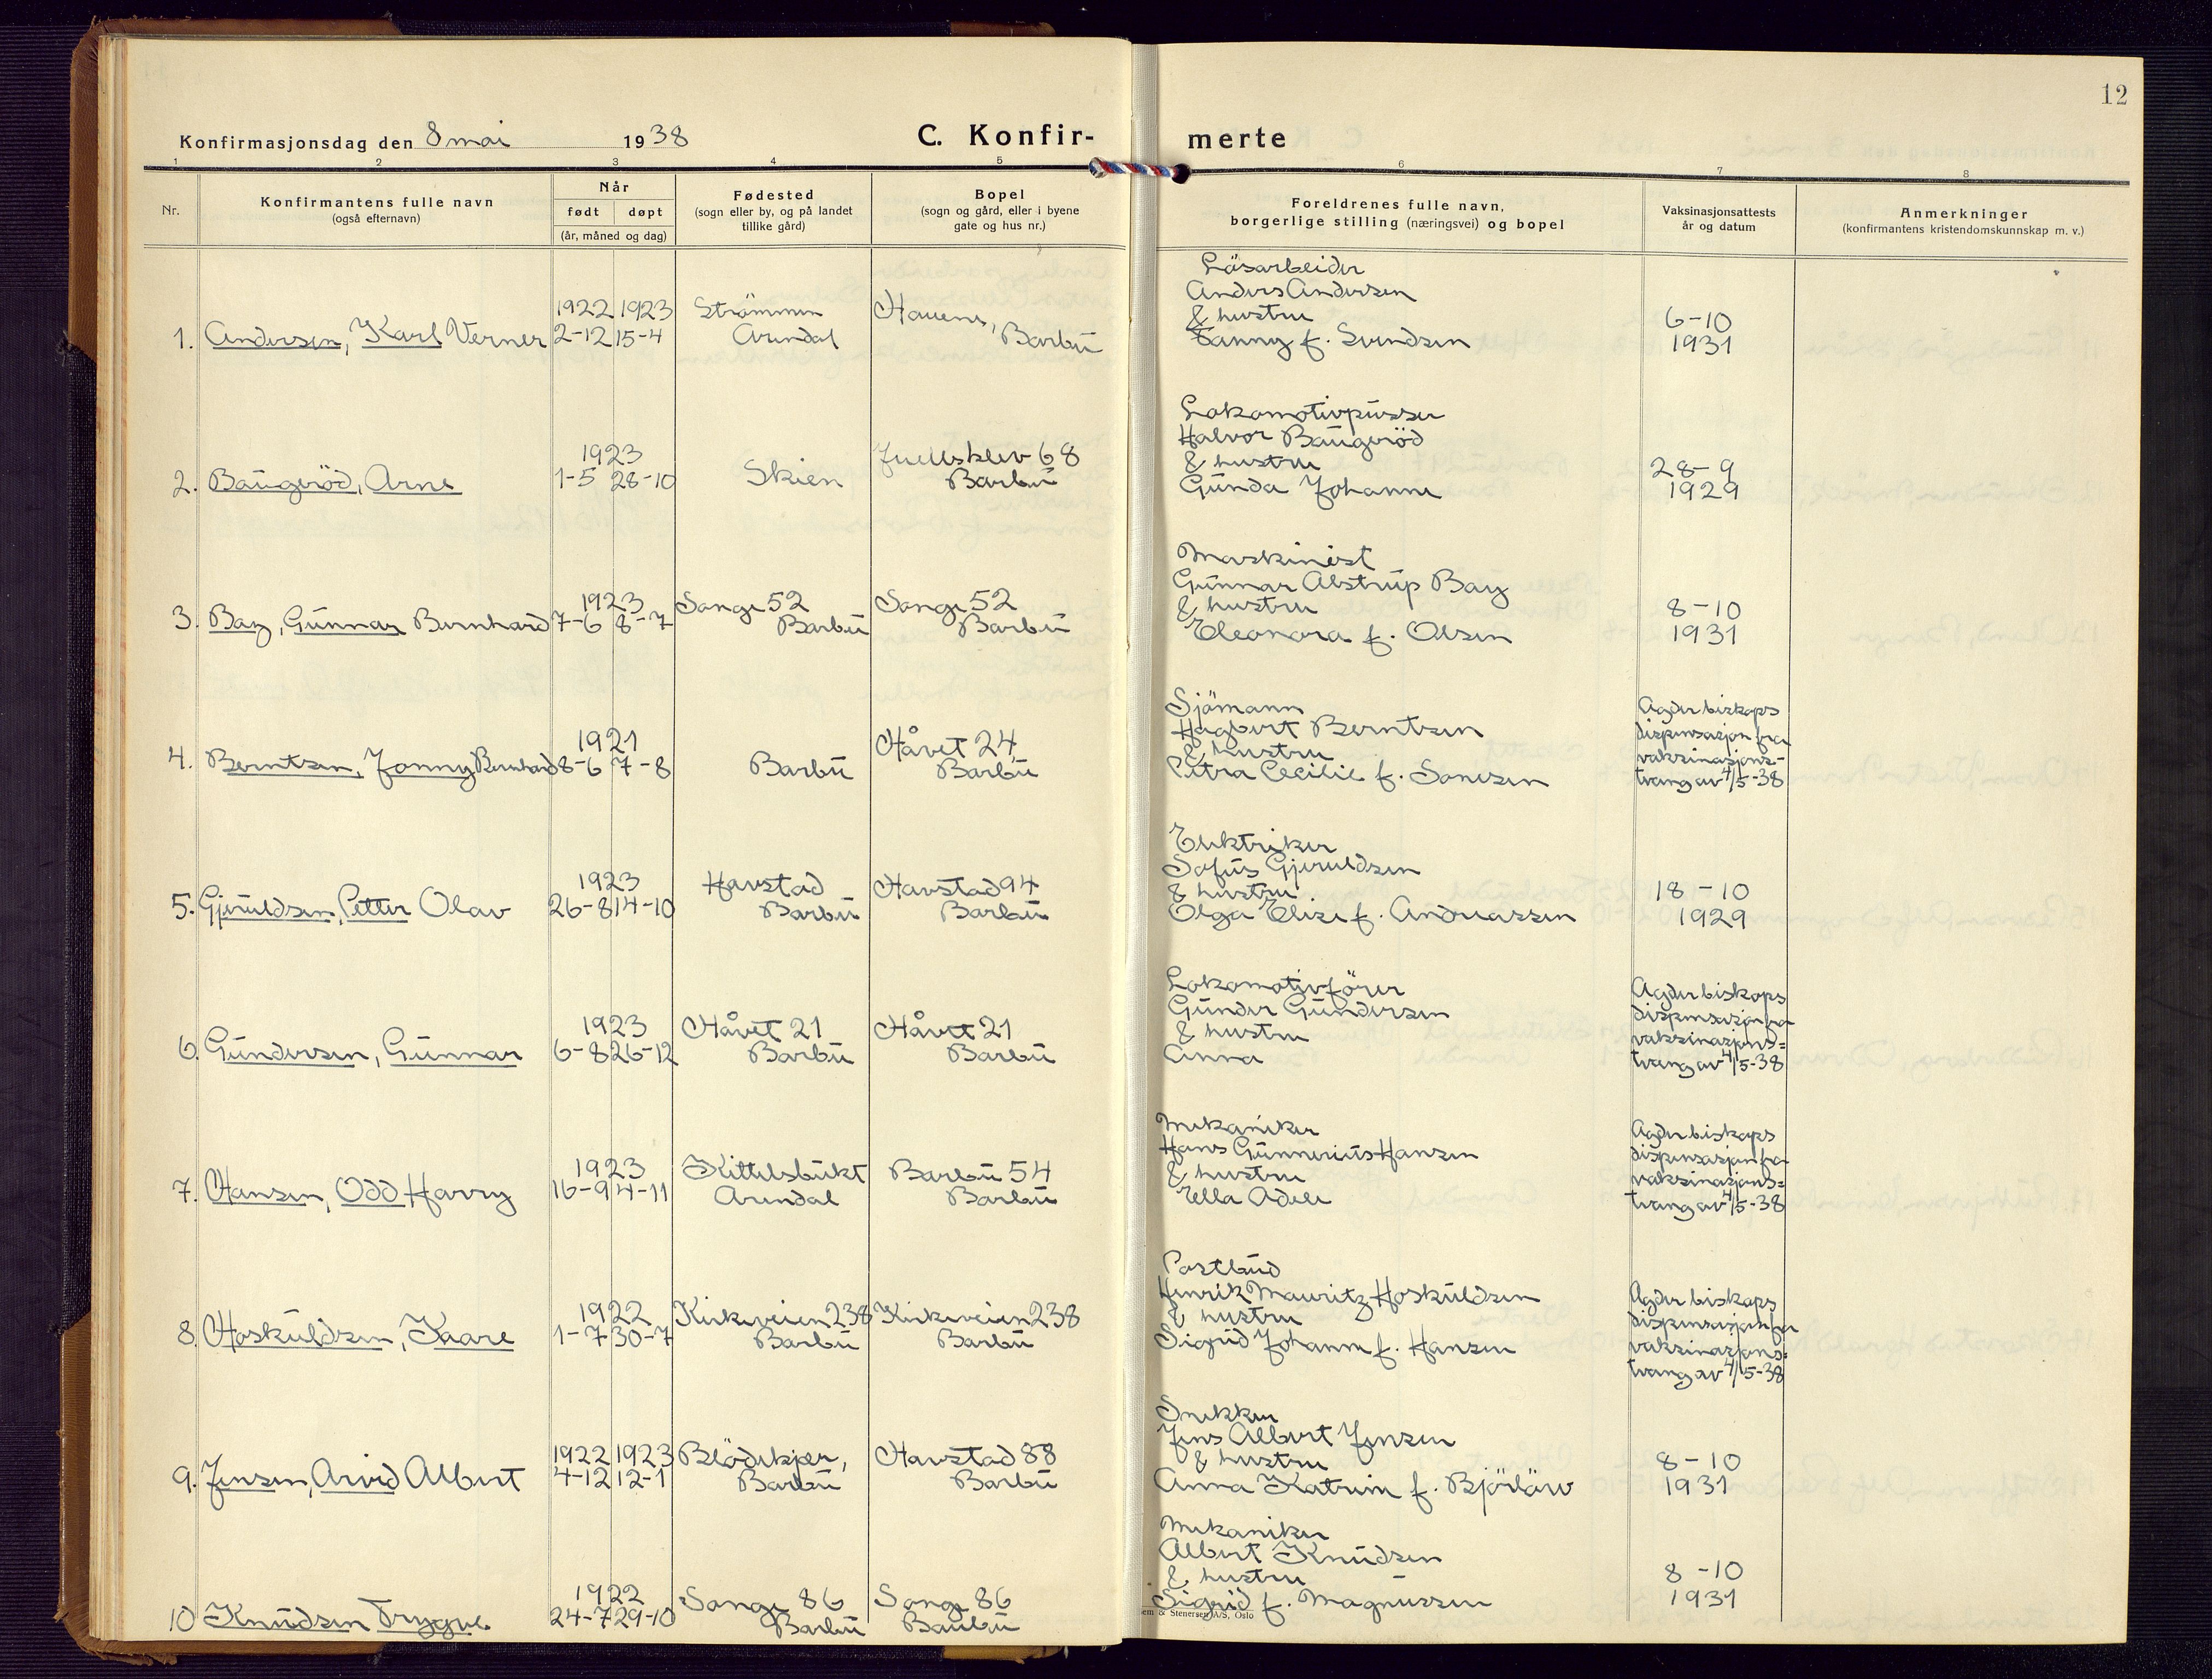 12
Konfirmasjonsdag den 8 mai 1938
C. Konfir-
merte
1 2 3 4 5 6 7 8
Nr.
Konfirmantens fulle navn
(også efternavn)
Når
født døpt
(år, måned og dag)
Fødested
(sogn eller by, og på landet
tillike gård)
Bopel
(sogn og gård, eller i byene
gate og hus nr.)
Foreldrenes fulle navn,
borgerlige stilling (næringsvei) og bopel
Vaksinasjonsattests
år og datum
Anmerkninger
(konfirmantens kristendomskunnskap m. v.)
1. Andersen, Karl Verner
1922 1923
2-12 15-4
Strömmen
Arendal
Havens,
Barbu
Løsarbeider
Anders Andersen
& hustru
Fanny f. Svendsen
6-10
1931
2. Baugeröd, Arne
1923
1-5 28-10
Skien
Juellsklev 68
Barbu
Lokomotivpusser
Halvor Baugeröd
& hustru
Gunda Johanne
28-9
1929
3. Bay, Gunnar Bernhard
1923
7-6 8-7
Songe 52
Barbu
Songe 52
Barbu
Maskinist
Gunnar Alstrup Bay
& hustru
Eleonora f. Olsen
8-10
1931
4. Berntsen, Jonny Bernhard
1921
8-6 7-8
Barbu
Håvet 24,
Barbu
Sjömann
Hagbert Berntsen
& hustru
Petra Cecilie f. Sonesen
Agder biskops
dispensasjon fra
vaksinasjons-
tvang av 4/5-38
5. Gjeruldsen, Petter Olav
1923
26-8 14-10
Havstad
Barbu
Havstad 94
Barbu
Elektriker
Sofus Gjeruldsen
& hustru
Olga Elise f. Andreassen
18-10
1929
6. Gundersen, Gunnar
1923
6-8 26-12
Håvet 21
Barbu
Håvet 21
Barbu
Lokomotivförer
Gunder Gundersen
& hustru
Anna
Agder biskops
dispensasjon fra
vaksinasjons=
tvang av 4/5-38
7. Hansen, Odd Harry
1923
16-9 4-11
Kittelsbukt
Arendal
Barbu 54
Barbu
Mekaniker
Hans Gunnerius Hansen
& hustru
Ella Adele
Agder biskops
dispensasjon fra
vaksinasjons=
tvang av 4/5-38
8. Hoskuldsen, Kaare
1922
1-7 30-7
Kirkeveien 238
Barbu
Kirkeveien 238
Barbu
Postbud
Henrik Mauritz Hoskuldsen
& hustru
Sigrid Johanne f. Hansen
Agder biskops
dispensasjon fra
vaksinasjons=
tvang av 4/5-38
9. Jensen, Arvid Albert
1922 1923
4-12 12-1
Blödekjær,
Barbu
Havstad 88
Barbu
Snekker
Jens Albert Jensen
& hustru
Anna Katrine f.
8-10
1931
10 Knudsen Trygve
1922
24-7 29-10
Songe 86
Barbu
Songe 86
Barbu
Mekaniker
Albert Knudsen
& hustru
Sigrid f. Magnussen
8-10
1931
& Stenersen A/S, Oslo